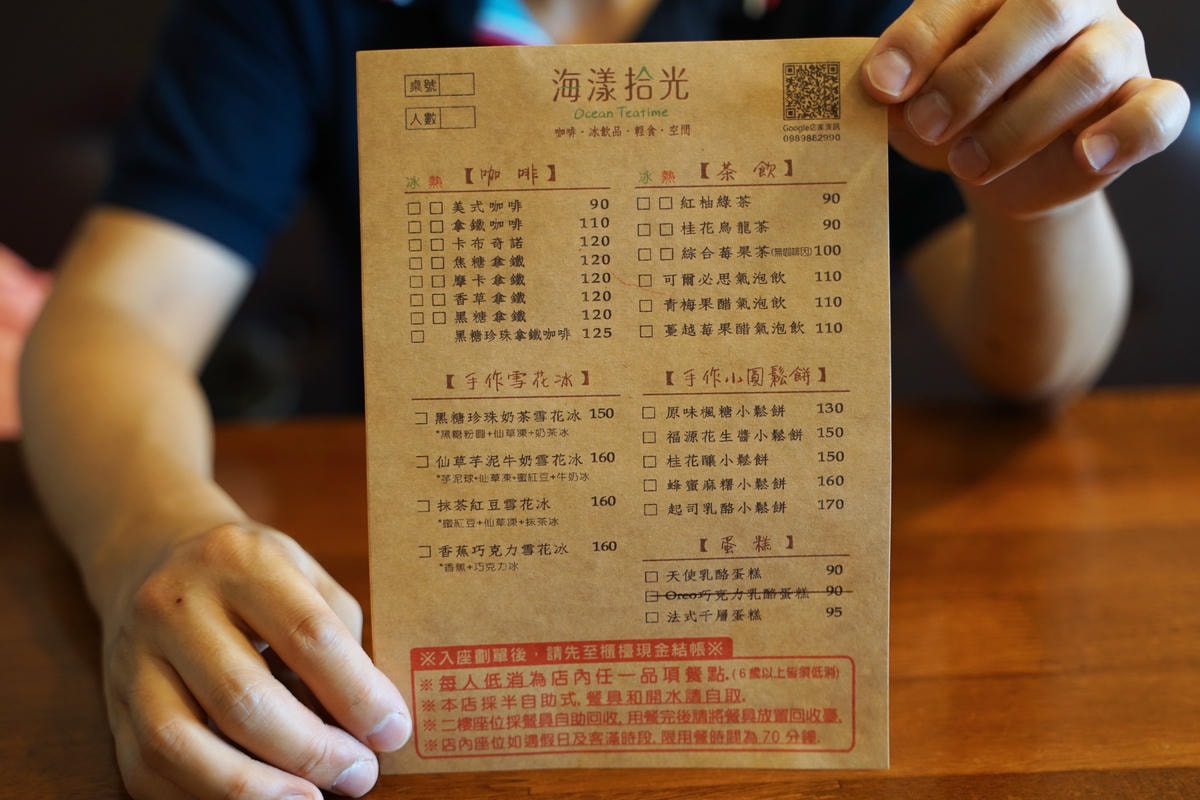 桌號
人數
海漾拾光
Ocean Teatime
咖啡·冰飲品·輕食·空間
Google店家資訊
0989882990
冰 熱 【咖啡】
美式咖啡 90
拿鐵咖啡 110
卡布奇諾 120
焦糖拿鐵 120
摩卡拿鐵 120
香草拿鐵 120
黑糖拿鐵 120
黑糖珍珠拿鐵咖啡 125
冰 熱 【茶飲】
紅柚綠茶 90
桂花烏龍茶 90
綜合莓果茶(無咖啡因) 100
可爾必思氣泡飲 110
青梅果醋氣泡飲 110
蔓越莓果醋氣泡飲 110
【手作雪花冰】
黑糖珍珠奶茶雪花冰 150
*黑糖粉圓+仙草凍+奶茶冰
仙草芋泥牛奶雪花冰 160
*芋泥球+仙草凍+蜜紅豆+牛奶冰
抹茶紅豆雪花冰 160
*蜜紅豆+仙草凍+抹茶冰
香蕉巧克力雪花冰 160
*香蕉+巧克力冰
【手作小圓鬆餅】
原味楓糖小鬆餅 130
福源花生醬小鬆餅 150
桂花釀小鬆餅 150
蜂蜜麻糬小鬆餅 160
起司乳酪小鬆餅 170
【蛋糕】
天使乳酪蛋糕 90
Oreo巧克力乳酪蛋糕 90
法式千層蛋糕 95
※入座劃單後，請先至櫃檯現金結帳※
※每人低消為店內任一品項餐點.(6歲以上皆須低消)
※本店採半自助式, 餐具和開水請自取.
※二樓座位採餐具自助回收, 用餐完後請將餐具放置回收臺.
※店內座位如遇假日及客滿時段, 限用餐時間為70分鐘.